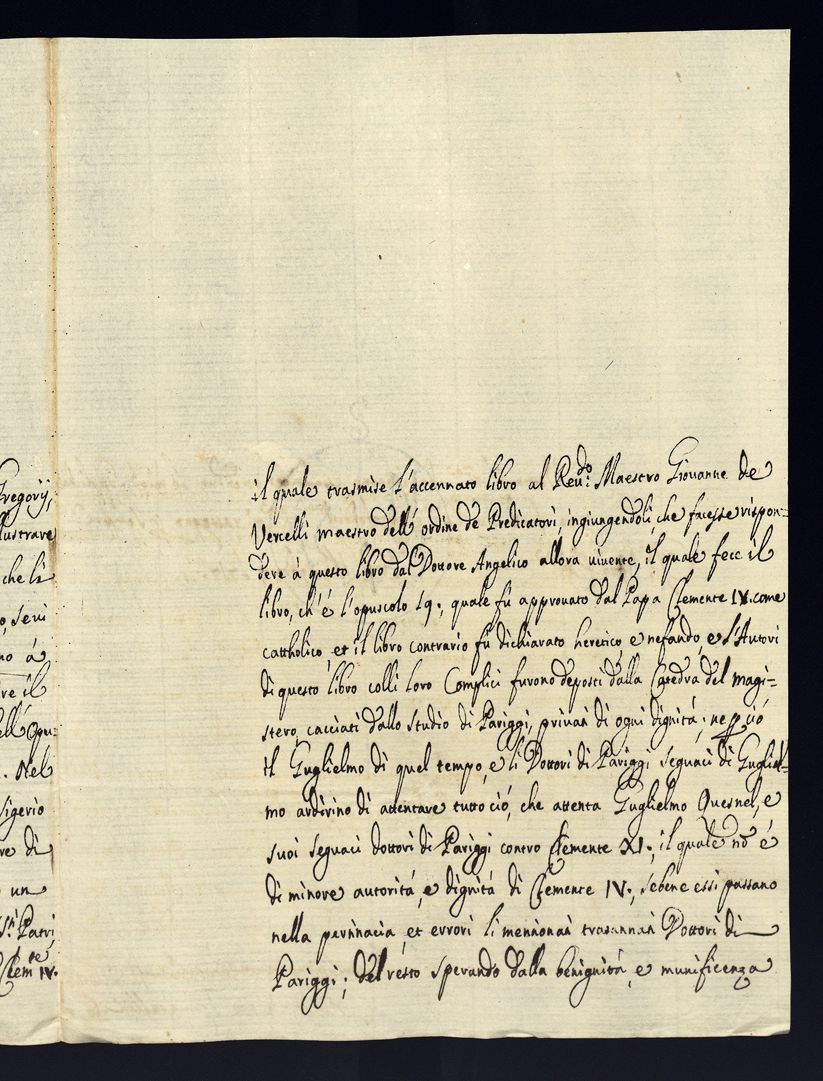 Gregorij,
lustrare
che li
o, servi
no á
re il
ell' Opu:
. Nel
Sigerio
re di
un
Patri,
Clem.te IV.
il quale trasmise l'accennato libro al Reu.do Maestro Giovanne de
Vercelli maestro dell' ordine de Predicatori, ingiungendoli, che facesse rispon=
dere à questo libro dal Dottore Angelico allora uiuente, il quale fece il
libro, ch'é l'opuscolo 19:, quale fù approuato dal Papa Clemente IV. come
cattholico, et il libro contrario fù dichiarato heretico, e nefando, e l'Autori
di questo libro colli loro Complici furono deposti dalla Catedra del magi=
stero, cacciati dallo studio di Pariggi, privati di ogni dignitá; ne p ció
il Guglielmo di quel tempo, e li Dottori di Pariggi seguaci di Gugliel=
mo ardirino di attentare tutto ció, che attenta Guglielmo Quesnel, e
suoi seguaci dottori di Pariggi contro Clemente XI:, il quale nō é
di minore autoritá, e dignitá di Clemente IV:, sebene essi passano
nella pertinacia, et errori li mentionati trasannati Dottori di
Pariggi; del resto sperando dalla benignitá, e munificenza